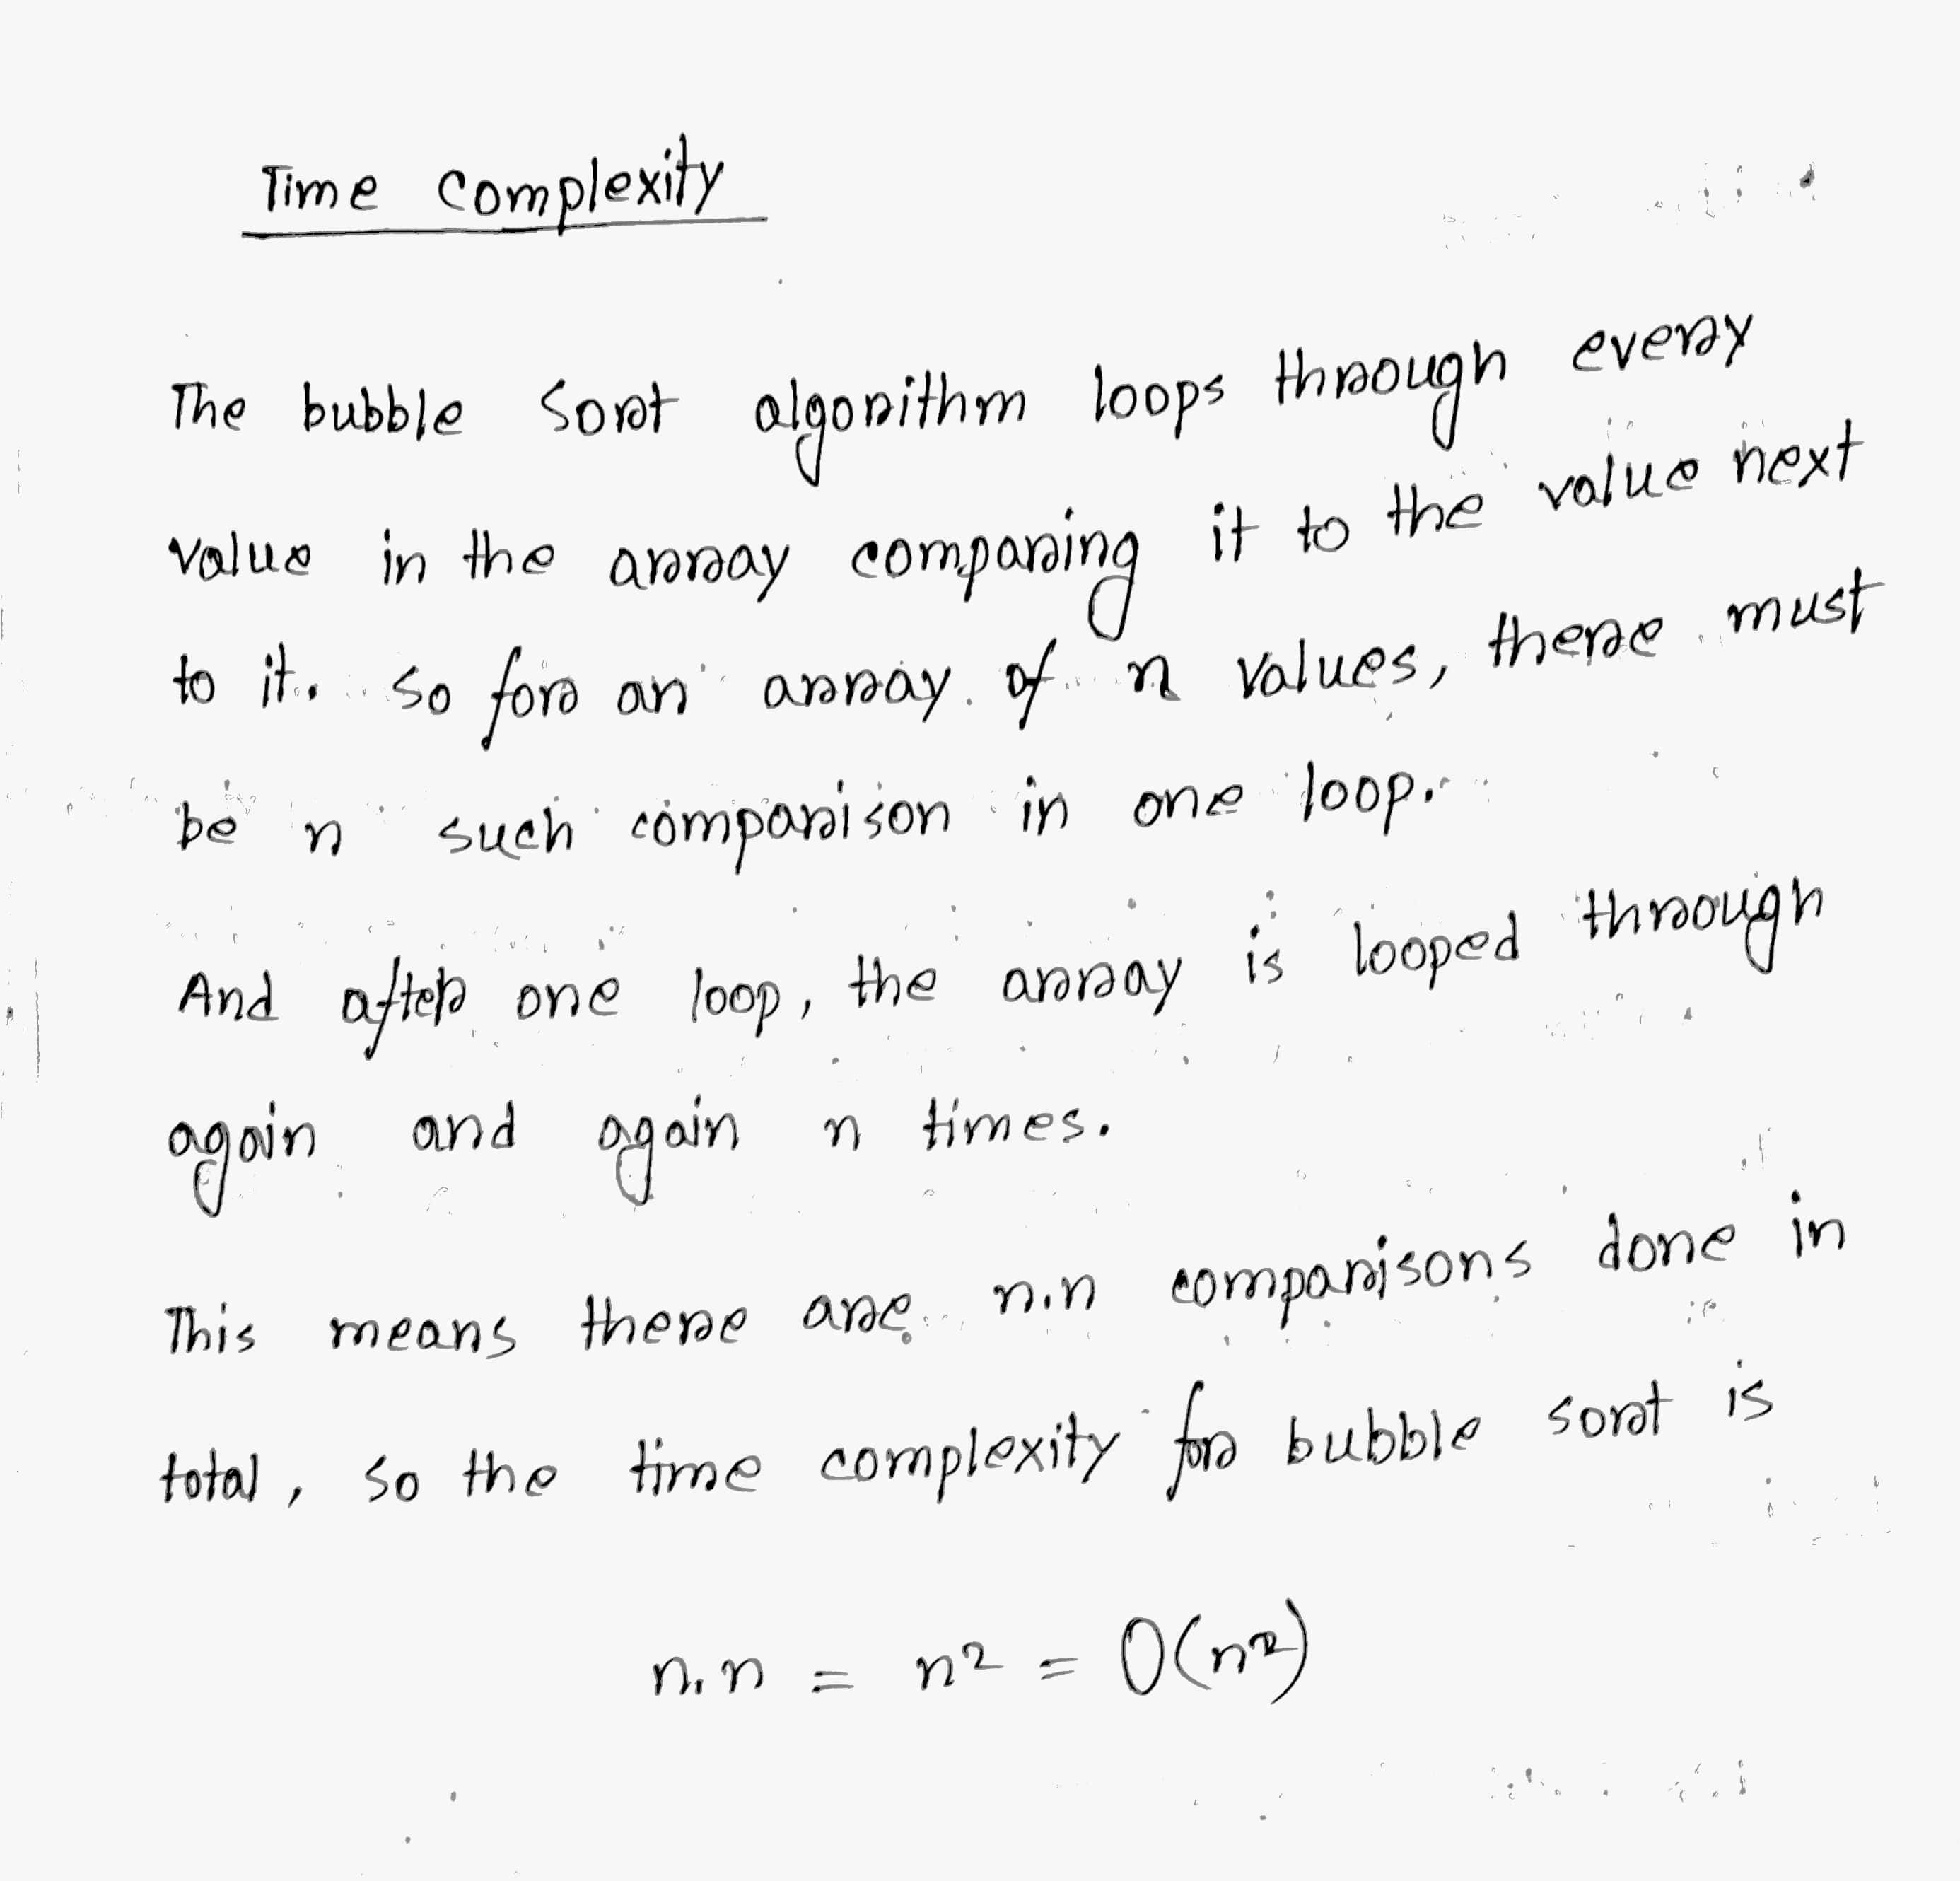 Time Complexity
The bubble sort algorithm loops through every
value in the array comparing it to the value next
to it. So for an array of n values, there must
be n such comparison in one loop.
And after one loop, the array is looped through
again and again n times.
This means there are n.n comparisons done in
total, so the time complexity for bubble sort is
n.n = n² = O(n²)